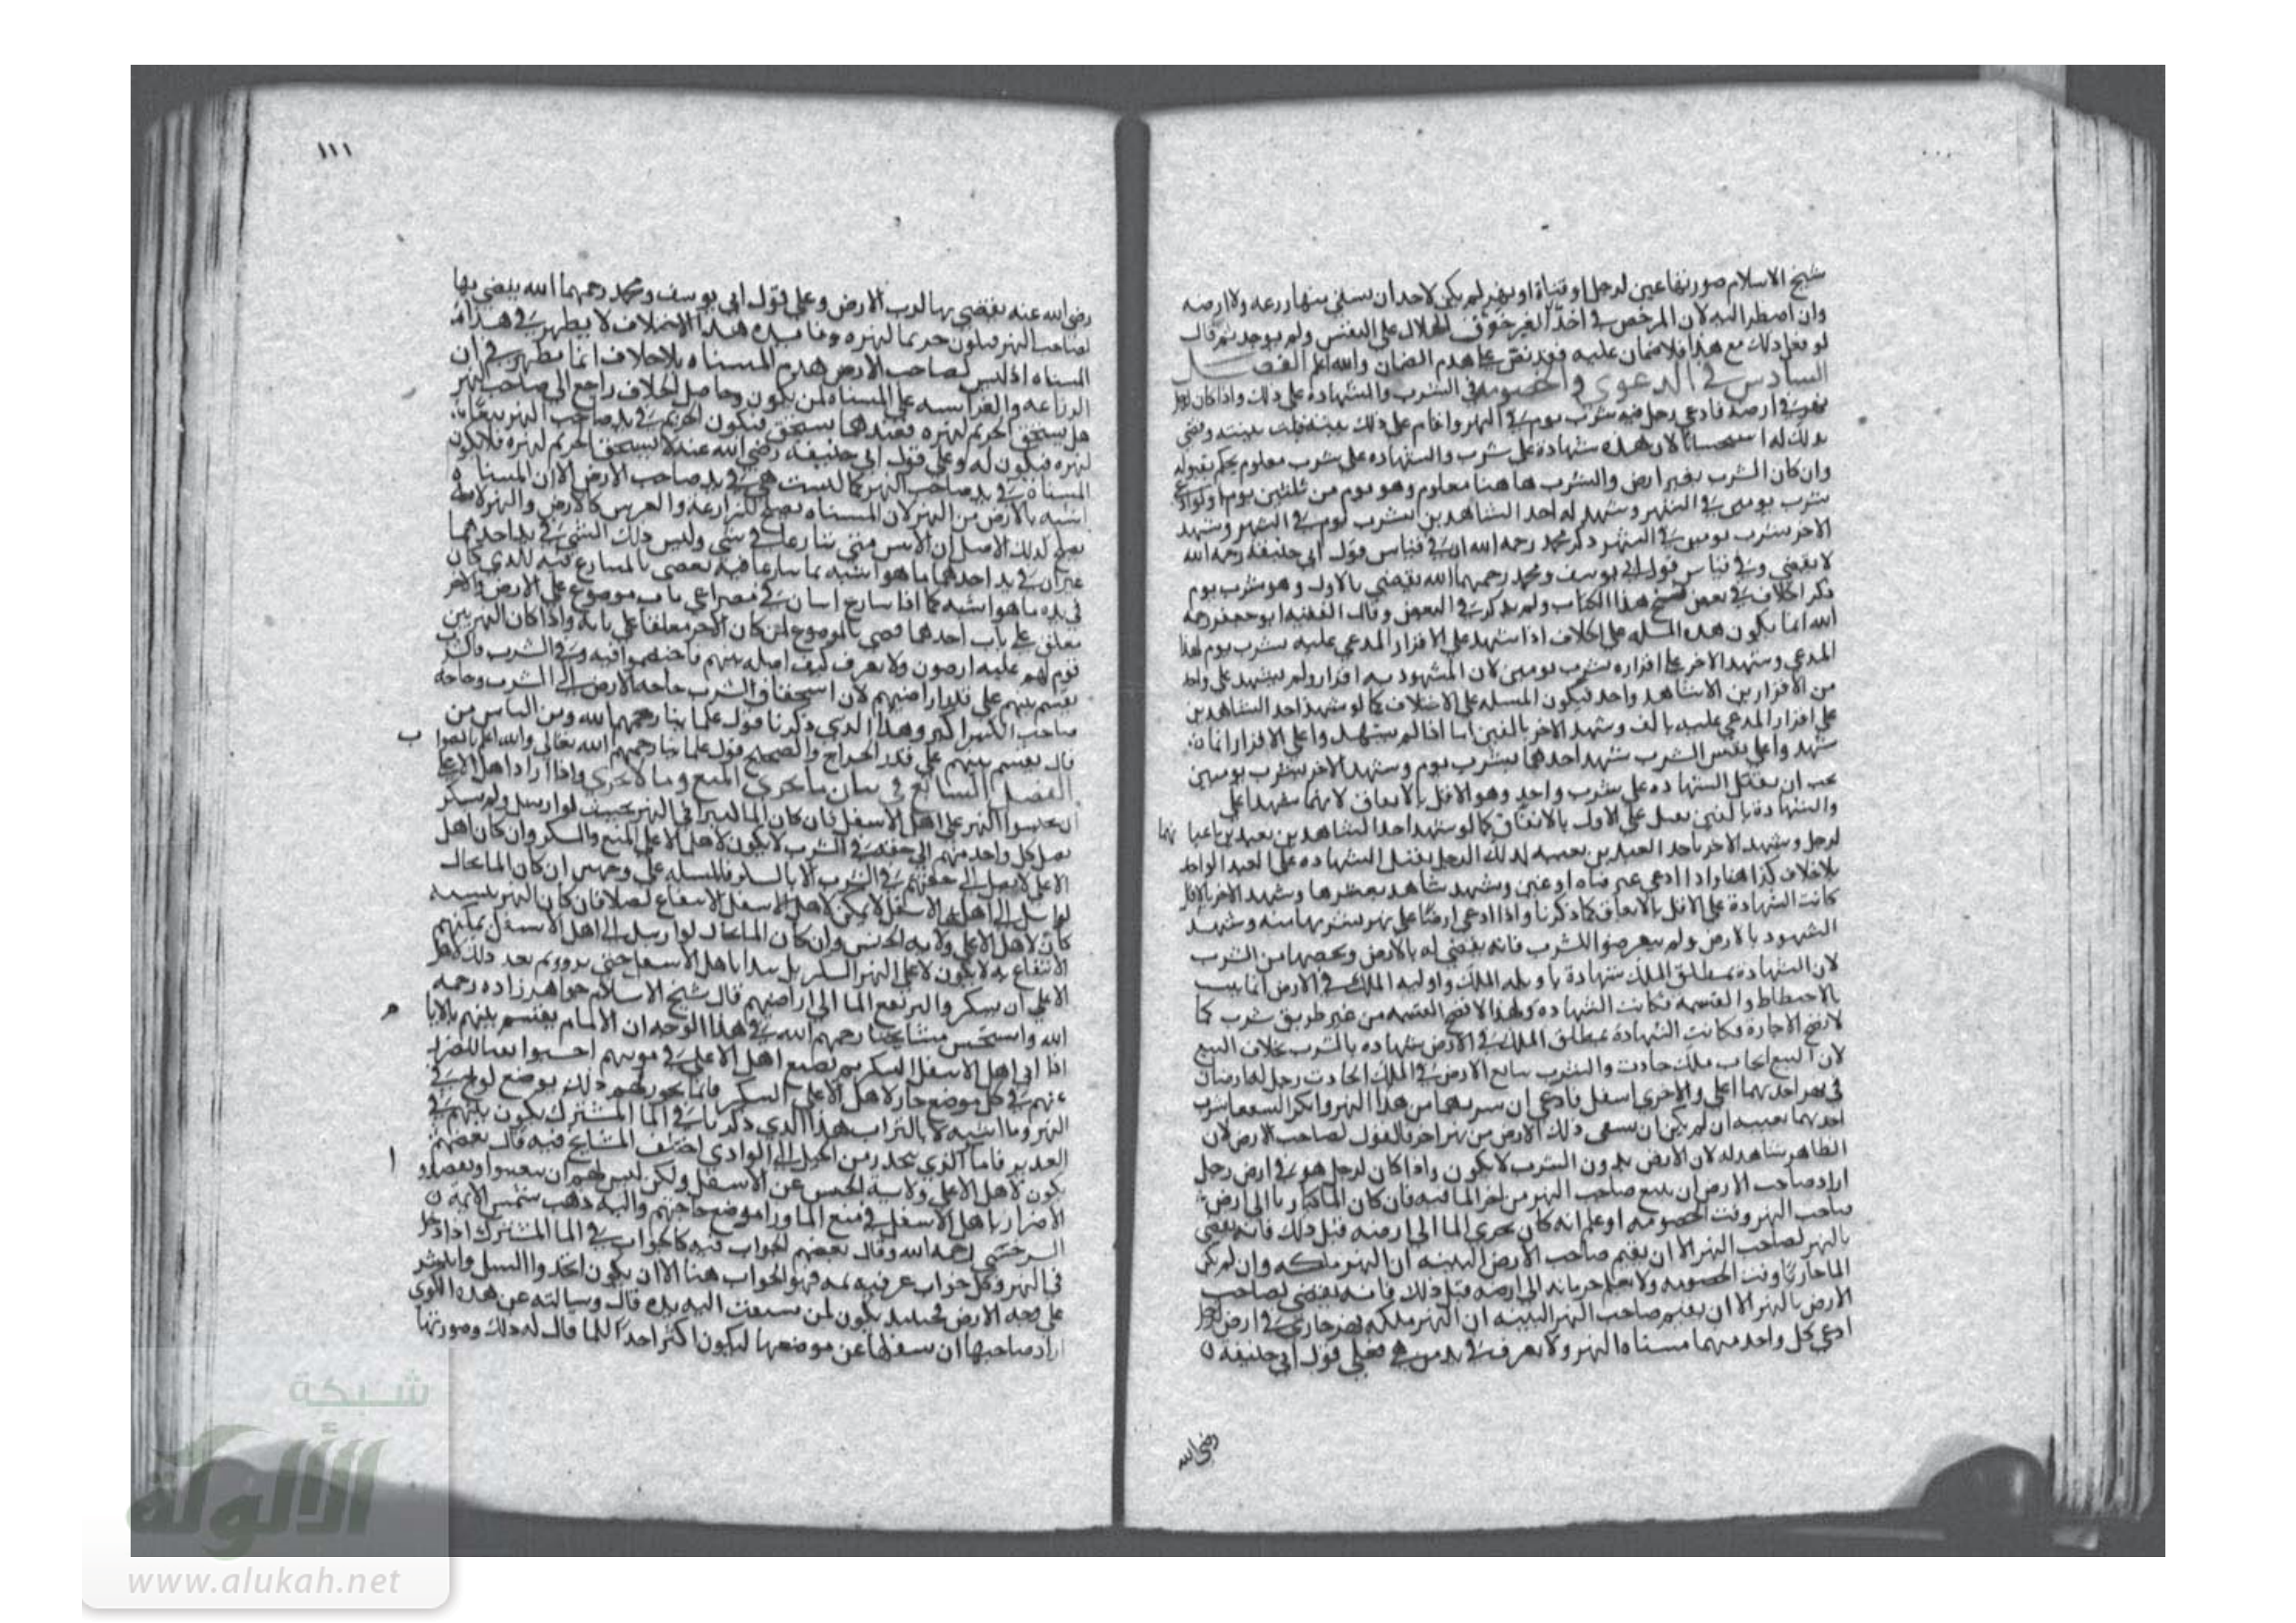 شيخ الاسلام صورتها عين لرجل او قناة او نهر لم يكن لاحد ان يسقي منها زرعه ولا ارضه
وان اضطر اليه لان المرخص في اخذ الغير خوف الهلاك على النفس ولم يوجد ثم قال
لو فعل ذلك مع هذا فلا ضمان عليه فقد نص على هدم الضمان والله اعلم الفصل
السادس في الدعوى والخصومة في الشرب والشهادة على ذلك واذا كان لرجل
نهر في ارضه فادعى رجل فيه شرب يوم في الشهر واقام على ذلك بينة قبلت بينته وقضي
بذلك له استحسانا لان هذه شهادة على شرب والشهادة على شرب معلوم يحكم بقبوله
وان كان الشرب بغير ارض والشرب هاهنا معلوم وهو يوم من ثلثين يوما ولو ادعى
شرب يومين في الشهر وشهد له احد الشاهدين بشرب يوم في الشهر وشهد
الاخر بشرب يومين في الشهر ذكر محمد رحمه الله ان في قياس قول ابي حنيفة رحمه الله
لا يقضي وفي قياس قول ابي يوسف ومحمد رحمهما الله يقضي بالاول وهو شرب يوم
ذكر الخلاف في بعض نسخ هذا الكتاب ولم يذكر في البعض وقال الفقيه ابو جعفر رحمه
الله انما يكون هذه المسلة على الخلاف اذا شهد على اقرار المدعى عليه بشرب يوم لهذا
المدعي وشهد الاخر على اقراره بشرب يومين لان المشهود به اقرار ولم يشهد على واحد
من الاقرارين الا شاهد واحد فيكون المسلة على الاختلاف كما لو شهد احد الشاهدين
على اقرار المدعى عليه بالف وشهد الاخر بالفين اما اذا لم يشهدوا على الاقرار انما
شهدوا على نفس الشرب شهد احدهما بشرب يوم وشهد الاخر بشرب يومين
يجب ان يقبل الشهادة على شرب واحد وهو الاقل بالاتفاق لانهما شهدا على
والشهادة بالفين يقبل على الاول بالاتفاق كما لو شهد احد الشاهدين بعبدين باعيا نهما
لرجل وشهد الاخر باحد العبدين بعينه لذلك الرجل يقبل الشهادة على العبد الواحد
بلا خلاف كذا هنا واذا ادعى عشر قناة او عين وشهد شاهد بعشرها وشهد الاخر بالاقل
كانت الشهادة على الاقل بالاتفاق كما ذكرنا واذا ادعى ارضا على نهر شربها منه وشهد
الشهود بالارض ولم يتعرضوا للشرب فانه يقضي له بالارض وبحصها من الشرب
لان الشهادة بمطلق الملك شهادة باولية الملك واولية الملك في الارض انما يثبت
بالاختطاط والقسمة فكانت الشهادة ولهذا لا تصح القسمة من غير طريق شرب كما
لا تصح الاجارة وكانت الشهادة بمطلق الملك في الارض شهادة بالشرب بخلاف البيع
لان البيع ايجاب ملك حادث والشرب تابع الارض في الملك الحادث رجل له ارضان
في نهر احديهما اعلى والاخرى اسفل فادعى ان شربهما من هذا النهر وانكر الشفعا شرب
احديهما بعينه ان لم يكن ان يسقى ذلك الارض من نهر اخر فالقول لصاحب الارض لان
الظاهر شاهد له لان الارض بدون الشرب لا يكون واذا كان لرجل هو في ارض رجل
اراد صاحب الارض ان يمنع صاحب النهر من اجر الما فيه فان كان الما جاريا الى ارض
صاحب النهر وقت الخصومة او علم انه كان يجري الما الى ارضه قبل ذلك فانه يقضي
بالنهر لصاحب النهر الا ان يقيم صاحب الارض البينة ان النهر ملكه وان لم يكن
الما جاريا وقت الخصومة ولا يعلم جريانه الى ارضه قبل ذلك فانه يقضي لصاحب
الارض بالنهر الا ان يقيم صاحب النهر البينة ان النهر ملكه نهر جاري في ارض لرجل
ادعى كل واحد منهما مسناة النهر ولا يعرف في يد من هي فعلى قول ابي حنيفة
رضي الله
١١١
رضي الله عنه يقضي بها لرب الارض وعلى قول ابي يوسف ومحمد رحمهما الله يقضي بها
لصاحب النهر فيكون حريما لنهره وفايدة هذا الاختلاف لا يظهر في هدم
المسناة اذ ليس لصاحب الارض هدم المسناة بلا خلاف انما يظهر في ان
الزراعة والغراسة على المسناة لمن يكون وحاصل الخلاف راجع الى صاحب النهر
هل يستحق الحريم لنهره فعندهما يستحق فيكون الحريم في يد صاحب النهر تبعا
لنهره فيكون له وعلى قول ابي حنيفة رضي الله عنه لا يستحق الحريم لنهره فلا يكون
المسناة في يد صاحب النهر كما ليست هي في يد صاحب الارض الا ان المسناة
اشبه بالارض من النهر لان المسناة يصلح للزراعة والغرس كالارض والنهر لا
يصلح لذلك الاصل ان الاثنين متى تنازعا في شي وليس ذلك الشي في يد احدهما
غير ان في يد احدهما ما هو اشبه بما تنازعا فيه يقضى بالمتنازع فيه للذي كان
في يده ما هو اشبه كما اذا تنازع اثنان في مصراعي باب موضوع على الارض والاخر
معلق على باب احدهما قضي بالموضوع لمن كان الاخر معلقا على بابه واذا كان النهر بين
قوم لهم عليه ارضون ولا يعرف كيف اصله بينهم فاختصموا فيه وفي الشرب فالشرب
يقسم بينهم على قدر اراضيهم لان استحقاق الشرب حاجة الارض الى الشرب وحاجة
صاحب الكثير اكبر وهذا الذي ذكرنا قول علمائنا رحمهم الله ومن الناس من
قال يقسم بينهم على قدر الخراج والصحيح قول علمائنا رحمهم الله تعالى والله اعلم بالصوا ب
الفصل السابع في بيان ما يجري المنع وما لا يجري واذا اراد اهل الاعلى
ان يحبسوا النهر على اهل الاسفل فان كان الما كثيرا في النهر بحيث لو ارسل ولم يسكر
يصل كل واحد منهم الى حقه في الشرب لا يكون لاهل الاعلى المنع والسكر وان كان اهل
الاعلى لا يصل الى حقهم في الشرب الا بالسكر فالمسلة على وجهين ان كان الما بحال
لو ارسل الى اهل الاسفل لا يمكن لاهل الاسفل الانتفاع اصلا فان كان النهر
كان لاهل الاعلى ولاية الحبس وان كان الما بحال لو ارسل الى اهل الاسفل يمكنهم
الانتفاع به لا يكون لاعلى النهر السكر بل يبدا باهل الاسفل حتى يرووا ثم بعد ذلك لاهل
الاعلى ان يسكر والير تفع الما الى اراضيهم قال شيخ الاسلام خواهرزاده رحمه
الله واستحسن مشايخنا رحمهم الله في هذا الوجه ان الامام يقسم بينهم بالايا م
اذا ابى اهل الاسفل السكر ثم يصنع اهل الاعلى في نوبتهم احبوا نفيا للضرر
عنهم في كل موضع جاز لاهل الاعلى السكر فانما يجوز لهم ذلك بوضع لوح في
النهر وما اشبه لا بالتراب هذا الذي ذكرنا في الما المشترك يكون بينهم في
الغدير فاما الذي ينحدر من الجبل الى الوادي اختلف المشايخ فيه قال بعضهم
يكون لاهل الاعلى ولاية الحبس عن الاسفل ولكن ليس لهم ان يقصدوا ا
الاضرار باهل الاسفل في منع الما ورا موضع حاجتهم واليه ذهب شمس الايمة
السرخسي رحمه الله وقال بعضهم الجواب فيه كالجواب في الما المشترك اذا دخل
في النهر وكل جواب عرفته ثمه فهو الجواب هنا الا ان يكون اخذوا السيل وانتشر
على وجه الارض فحينئذ يكون لمن سبقت اليه يده قال وسالته عن هذه الكوى
اراد صاحبها ان يسفلها عن موضعها ليكون اكثر اخذا للما قال له ذلك وصورتها